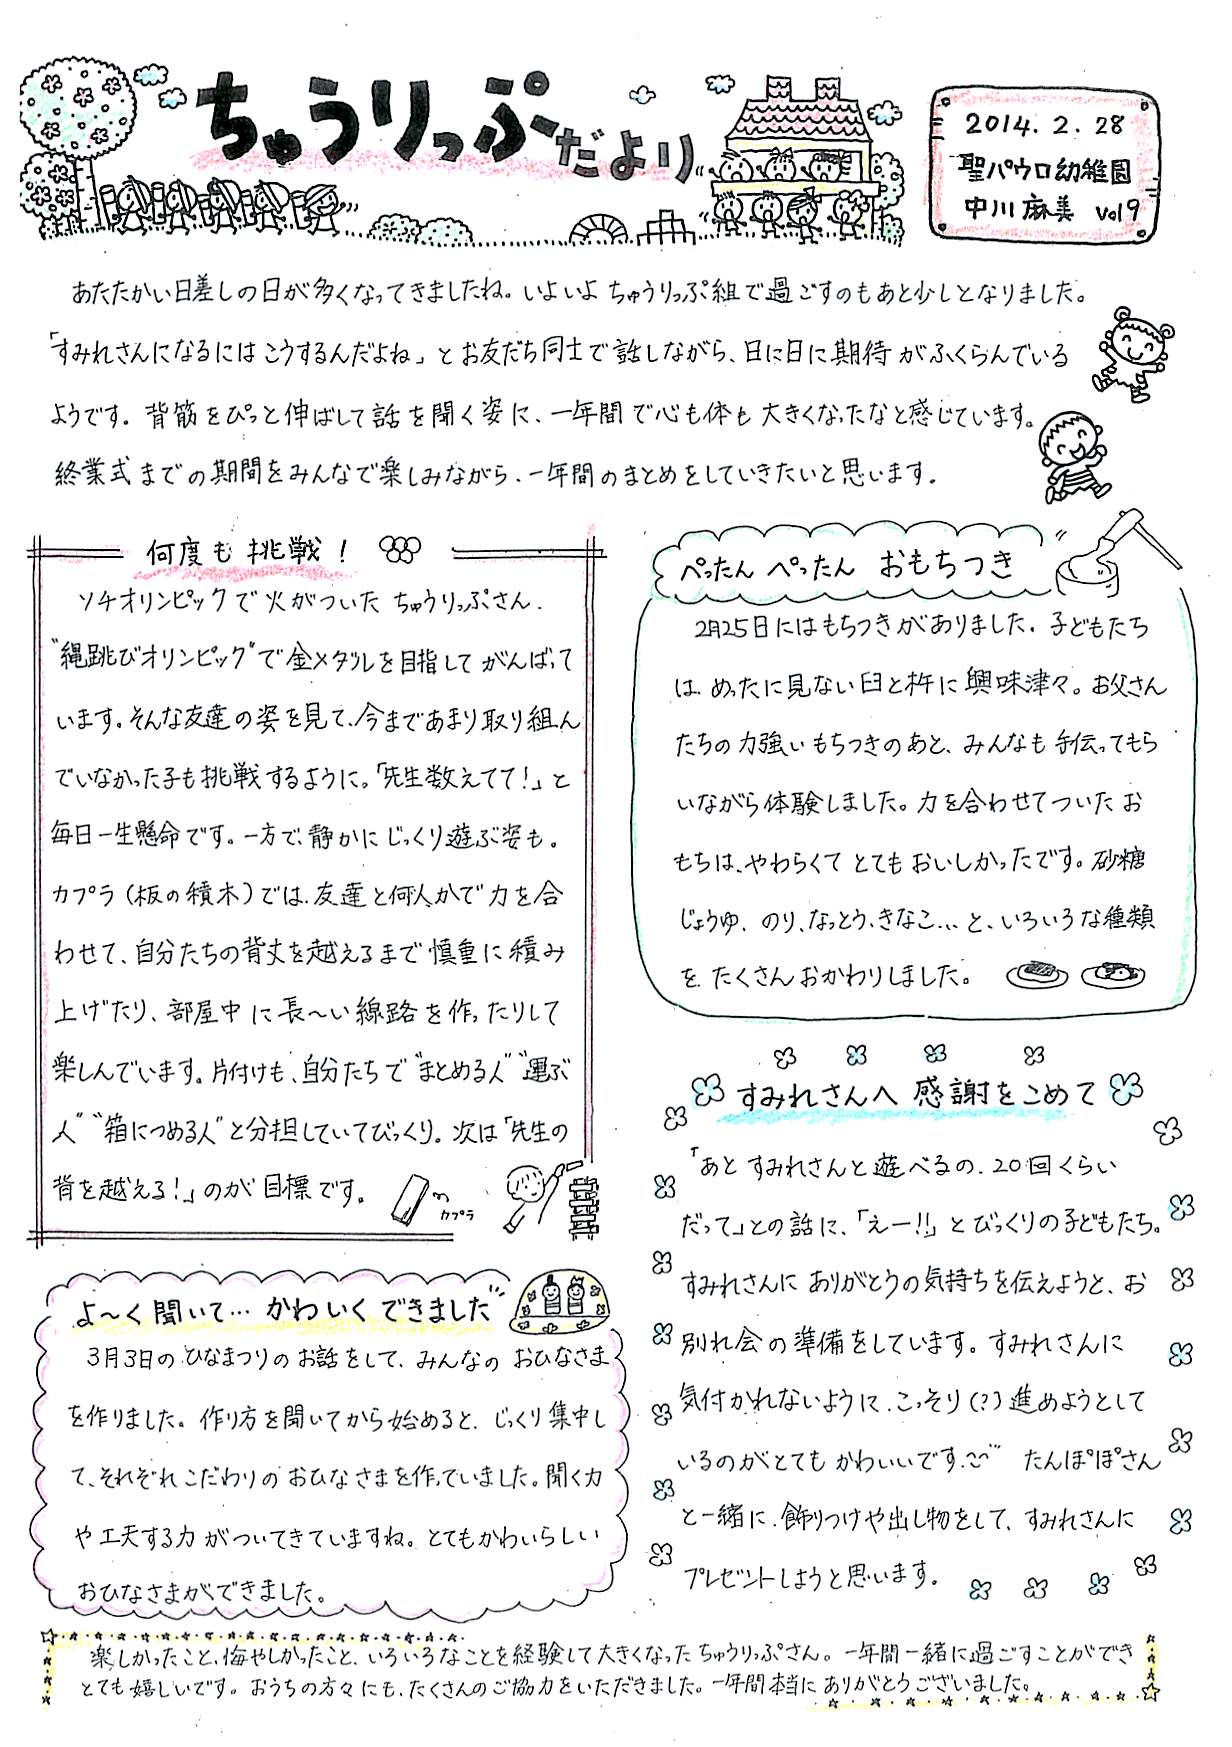 ちゅうりっぷだより
2014.2.28
聖パウロ幼稚園
中川麻美 Vol9
あたたかい日差しの日が多くなってきましたね。いよいよ ちゅうりっぷ組で過ごすのもあと少しとなりました。
「すみれさんになるには こうするんだよね」と お友だち同士で話しながら、日に日に期待がふくらんでいる
ようです。背筋をぴっと伸ばして話を聞く姿に、一年間で心も体も大きくなったなと感じています。
終業式までの期間をみんなで楽しみながら、一年間のまとめをしていきたいと思います。
何度も挑戦!
ソチオリンピックで火がついた ちゅうりっぷさん。
"縄跳びオリンピック"で金メダルを目指して がんばって
います。そんな友達の姿を見て、今まであまり取り組ん
でいなかった子も挑戦するように。「先生数えてて!」と
毎日一生懸命です。一方で、静かにじっくり遊ぶ姿も。
カプラ(板の積木)では、友達と何人かで力を合
わせて、自分たちの背丈を越えるまで慎重に積み
上げたり、部屋中に長〜い線路を作ったりして
楽しんでいます。片付けも、自分たちで"まとめる人""運ぶ
人""箱につめる人"と分担していてびっくり。次は「先生の
背を越える!」のが目標です。
カプラ
ぺったん ぺったん おもちつき
2月25日にはもちつきがありました。子どもたち
は めったに見ない臼と杵に興味津々。お父さん
たちの力強いもちつきのあと、みんなも手伝ってもら
いながら体験しました。力を合わせてついたお
もちは、やわらくて とても おいしかったです。砂糖
じょうゆ、のり、なっとう、きなこ...と、いろいろな種類
を たくさんおかわりしました。
すみれさんへ 感謝をこめて
「あと すみれさんと遊べるの、20回くらい
だって」との話に、「えー!!」とびっくりの子どもたち。
すみれさんに ありがとうの気持ちを伝えようと、お
別れ会の準備をしています。すみれさんに
気付かれないように、こっそり(?)進めようとして
いるのがとても かわいいです。 たんぽぽさん
と一緒に、飾りつけや出し物をして、すみれさんに
プレゼントしようと思います。
よ〜く聞いて… かわいくできました
3月3日のひなまつりのお話をして、みんなの おひなさま
を作りました。作り方を聞いてから始めると、じっくり集中し
て、それぞれこだわりの おひなさまを作っていました。聞く力
や工夫する力がついてきていますね。とてもかわいらしい
おひなさまができました。
楽しかったこと、悔やしかったこと、いろいろなことを経験して大きくなった ちゅうりっぷさん。一年間一緒に過ごすことができ
とても嬉しいです。おうちの方々にも、たくさんのご協力をいただきました。一年間本当にありがとうございました。